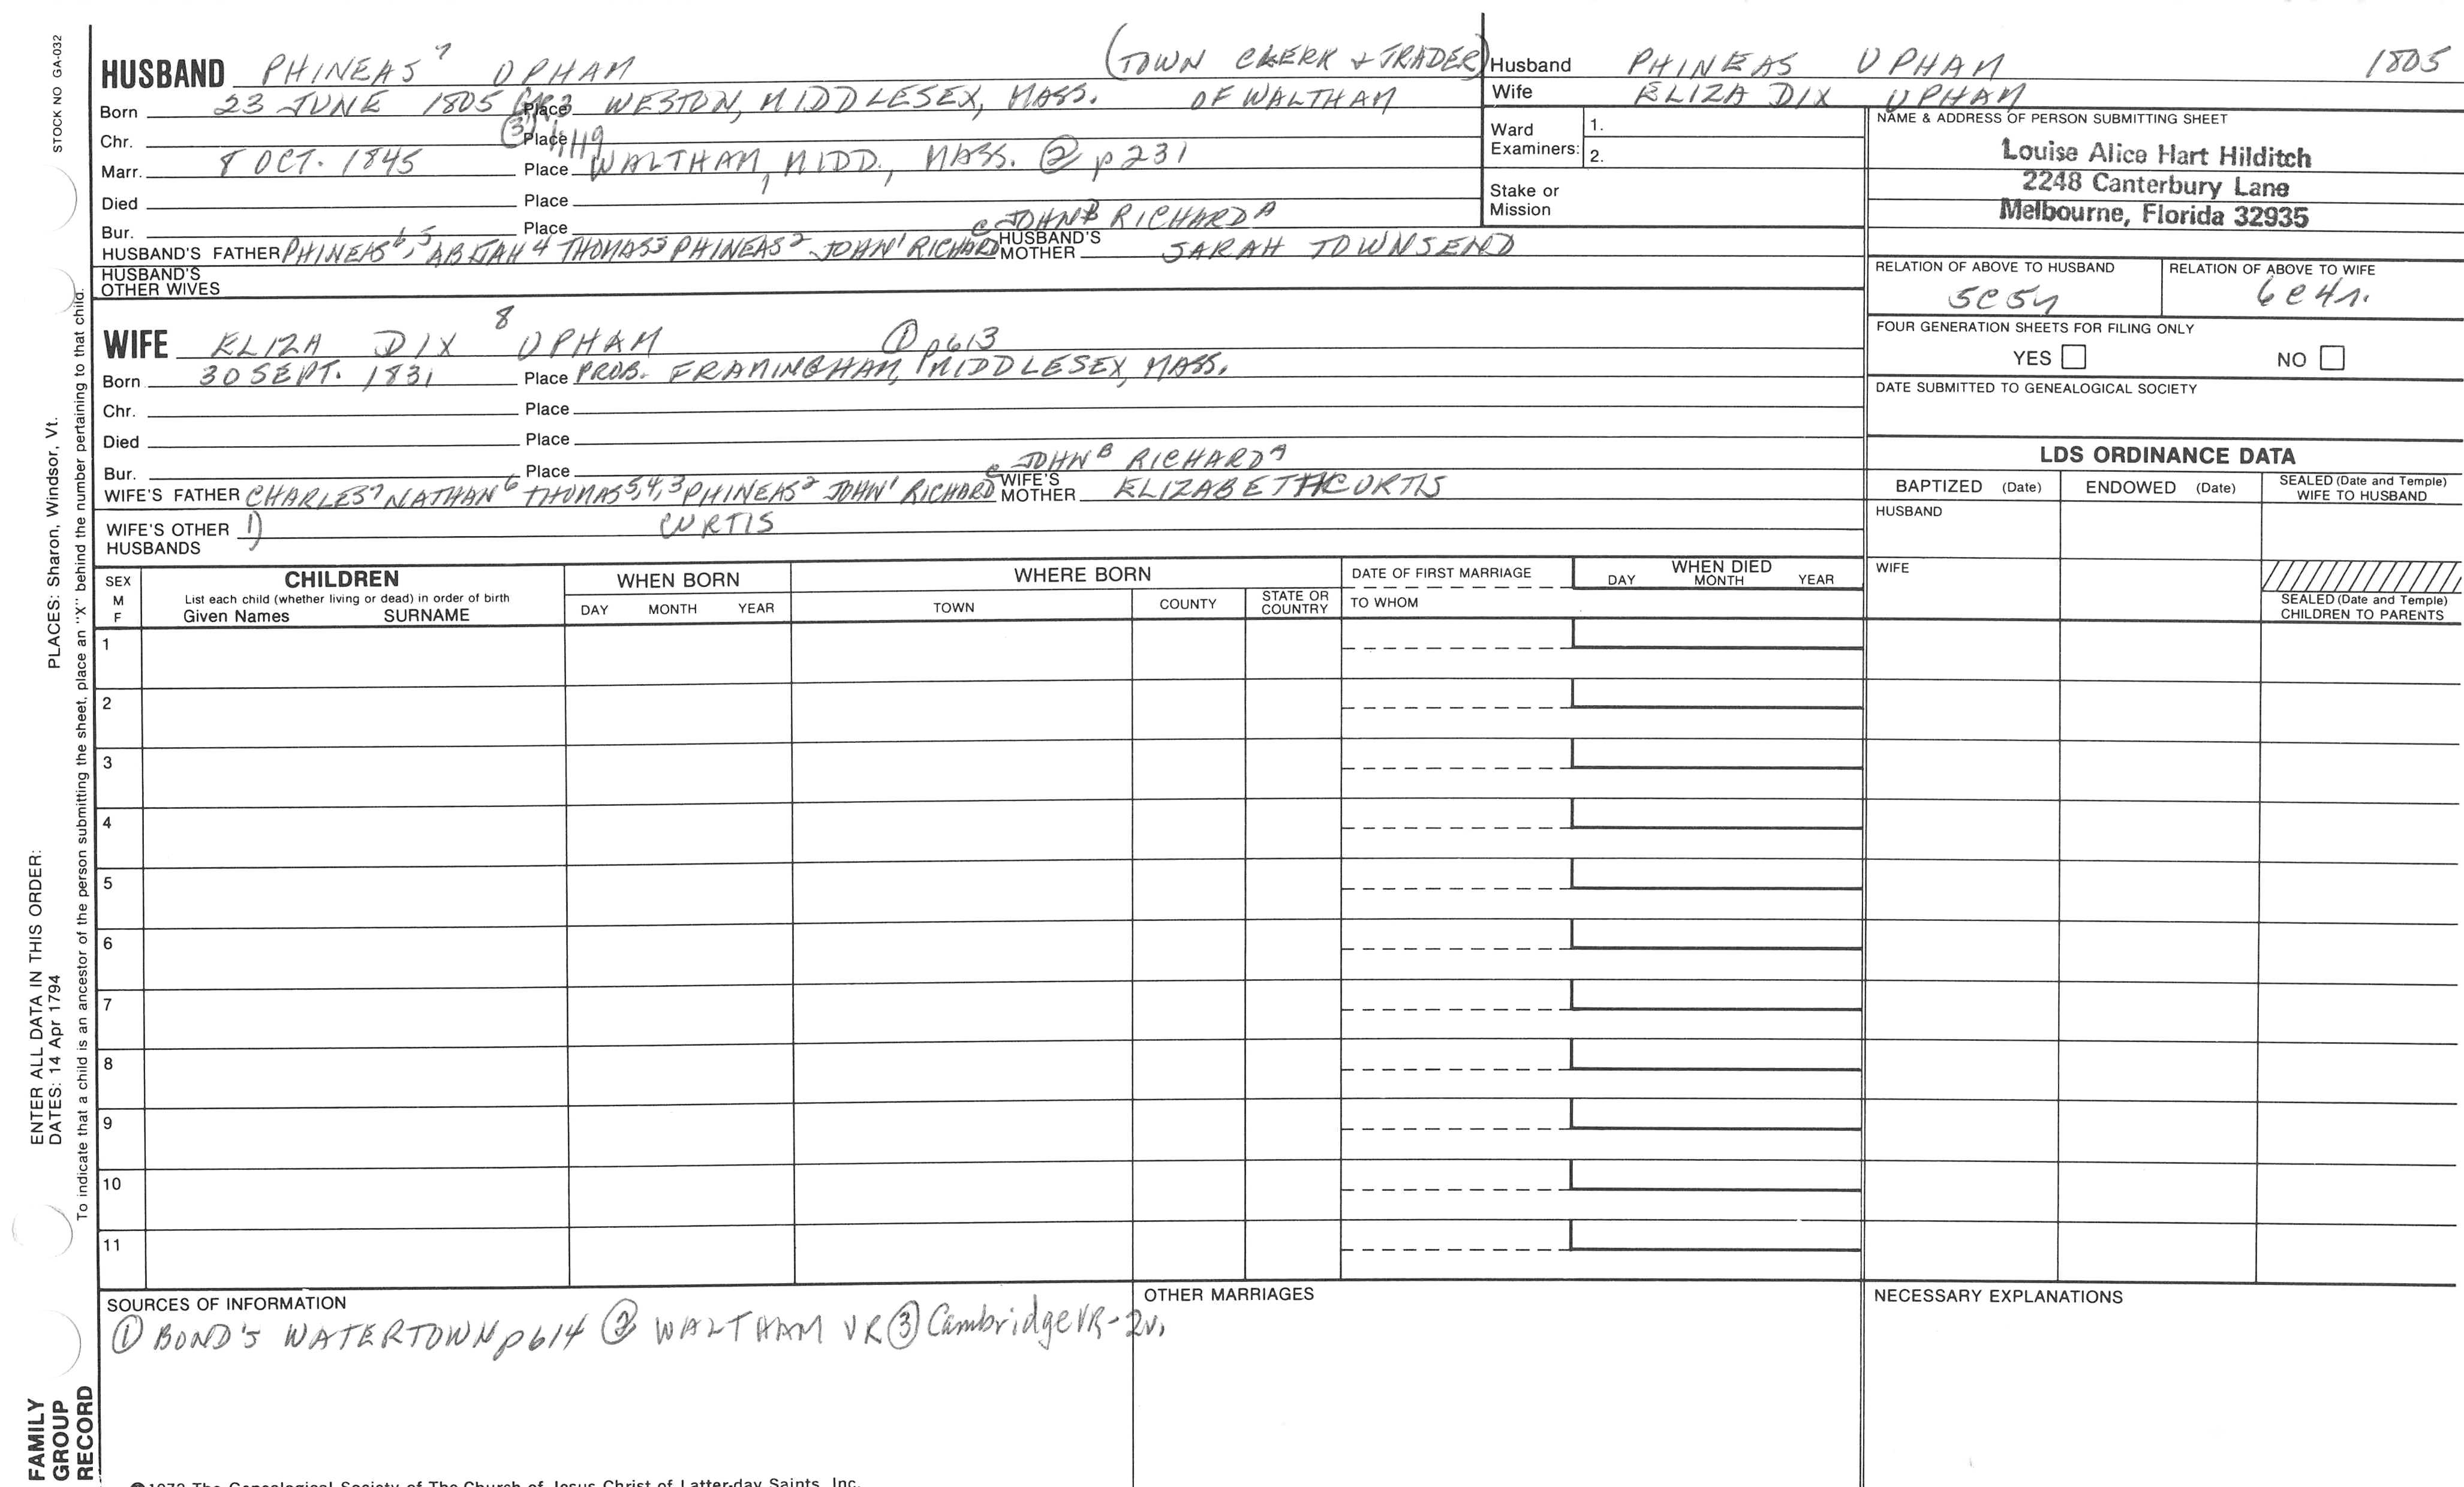 STOCK NO GA-032
PLACES: Sharon, Windsor, Vt.
ENTER ALL DATA IN THIS ORDER:
DATES: 14 Apr 1794
To indicate that a child is an ancestor of the person submitting the sheet, place an "X" behind the number pertaining to that child.
FAMILY GROUP RECORD
HUSBAND PHINEAS 7 UPHAM (TOWN CLERK & TRADER)
Born 23 JUNE 1805 Place WESTON, MIDDLESEX, MASS. OF WALTHAM
Chr. Place (3) 4119
Marr. 8 OCT. 1845 Place WALTHAM, MIDD., MASS. ② p 231
Died Place
Bur. Place C JOHN B RICHARD A
HUSBAND'S FATHER PHINEAS 6,5 ABIJAH 4 THOMAS 3 PHINEAS 2 JOHN 1 RICHARD HUSBAND'S MOTHER SARAH TOWNSEND
HUSBAND'S OTHER WIVES
WIFE ELIZA DIX 8 UPHAM ① p613
Born 30 SEPT. 1831 Place PROB. FRAMINGHAM, MIDDLESEX, MASS.
Chr. Place
Died Place
Bur. Place C JOHN B RICHARD A
WIFE'S FATHER CHARLES 7 NATHAN 6 THOMAS 5,4,3 PHINEAS 2 JOHN 1 RICHARD WIFE'S MOTHER ELIZABETH CURTIS
WIFE'S OTHER HUSBANDS 1) CURTIS
Husband PHINEAS UPHAM 1805
Wife ELIZA DIX UPHAM
Ward Examiners: 1.
2.
Stake or Mission
NAME & ADDRESS OF PERSON SUBMITTING SHEET
Louise Alice Hart Hilditch
2248 Canterbury Lane
Melbourne, Florida 32935
RELATION OF ABOVE TO HUSBAND RELATION OF ABOVE TO WIFE
5C5r 6C4r.
FOUR GENERATION SHEETS FOR FILING ONLY
YES NO
DATE SUBMITTED TO GENEALOGICAL SOCIETY
LDS ORDINANCE DATA
BAPTIZED (Date) ENDOWED (Date) SEALED (Date and Temple) WIFE TO HUSBAND
HUSBAND
WIFE
SEALED (Date and Temple) CHILDREN TO PARENTS
SEX M F
CHILDREN
List each child (whether living or dead) in order of birth
Given Names SURNAME
WHEN BORN
DAY MONTH YEAR
WHERE BORN
TOWN COUNTY STATE OR COUNTRY
DATE OF FIRST MARRIAGE
TO WHOM
WHEN DIED
DAY MONTH YEAR
1
2
3
4
5
6
7
8
9
10
11
SOURCES OF INFORMATION
① BOND'S WATERTOWN p614 ② WALTHAM VR ③ Cambridge VR-2v.
OTHER MARRIAGES
NECESSARY EXPLANATIONS
©1972 The Genealogical Society of The Church of Jesus Christ of Latter-day Saints, Inc.